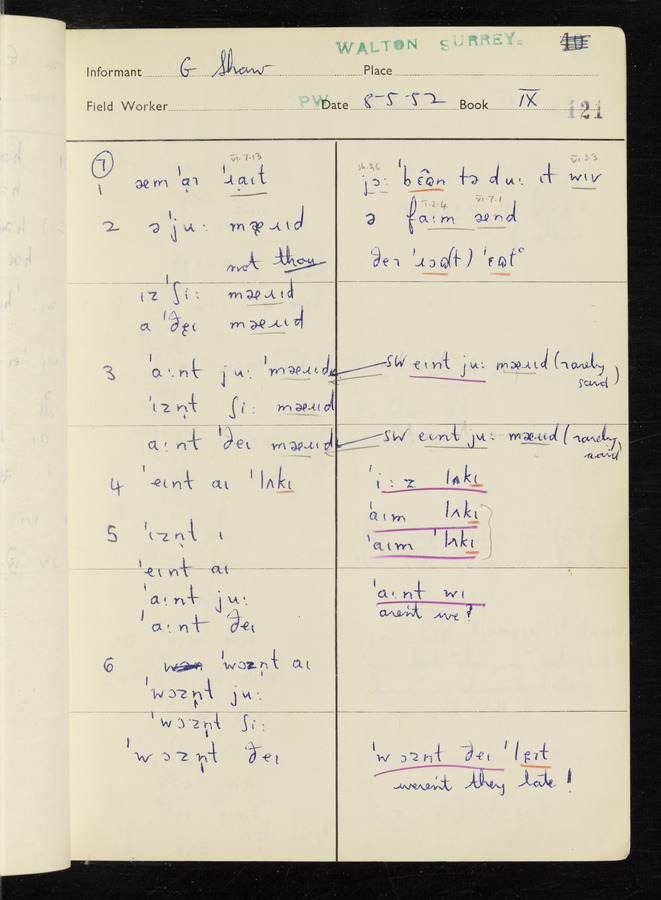 WALTON SURREY.
40
Informant G Shaw Place
Field Worker PW Date 8-5-52 Book IX
121
7
VI.7.13
1 æm 'aɪ 'ɹaɪt
2 ə'ju: mæɹɪd
not thou
ɪz 'ʃi: mæɹɪd
a 'ðeɪ mæɹɪd
3 'a:nt ju: 'mæɹɪd
'ɪzn̩t ʃi: mæɹɪd
a:nt 'ðeɪ mæɹɪd
4 'eɪnt aɪ 'lʌkɪ
5 'ɪzn̩t ɪ
'eɪnt aɪ
'a:nt ju:
'a:nt ðeɪ
6 'wɔzn̩t aɪ
'wɔzn̩t ju:
'wɔzn̩t ʃi:
'wɔzn̩t ðeɪ
tə du: ɪt wɪv
ə fa:m ænd
SW eɪnt ju: mæɹɪd (rarely said)
SW eɪnt ju: mæɹɪd (rarely said)
'i:z lʌkɪ
'aɪm lʌkɪ
'aɪm 'lʌkɪ
'a:nt wɪ
aren't we?
'wɔznt ðeɪ 'lɛɪt
weren't they late!